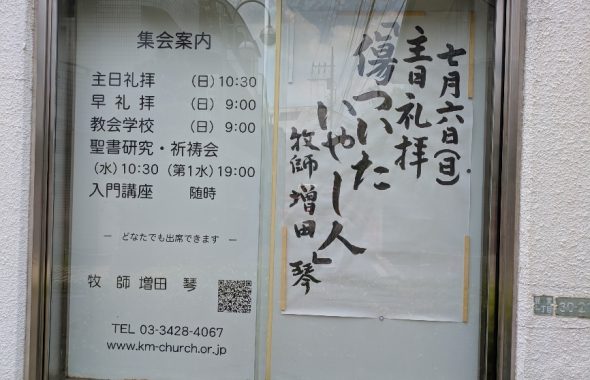 集会案内
主日礼拝 (日) 10:30
早礼拝 (日) 9:00
教会学校 (日) 9:00
聖書研究・祈祷会
(水) 10:30 (第1水) 19:00
入門講座 随時
― どなたでも出席できます ―
牧師 増田 琴
TEL 03-3428-4067
www.km-church.or.jp
七月六日(日)
主日礼拝
「傷ついた
いやし人」
牧師 増田 琴